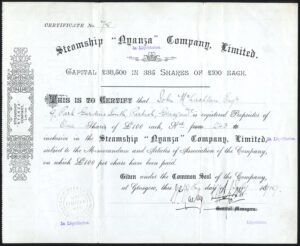 CERTIFICATE No.
Steamship "Nyanza" Company, Limited.
In Liquidation.
CAPITAL £38,500 IN 385 SHARES OF £100 EACH.
THIS IS TO CERTIFY that John
Park Gardens South, Partick, Glasgow is registered Proprietor of
One Shares of £100 each, Nos. from to
inclusive in the Steamship "Nyanza" Company, Limited,
subject to the Memorandum and Articles of Association of the Company,
on which £100 per share have been paid.
Given under the Common Seal of the Company,
at Glasgow, this day of
In Liquidation.
In Liquidation.
General Managers.